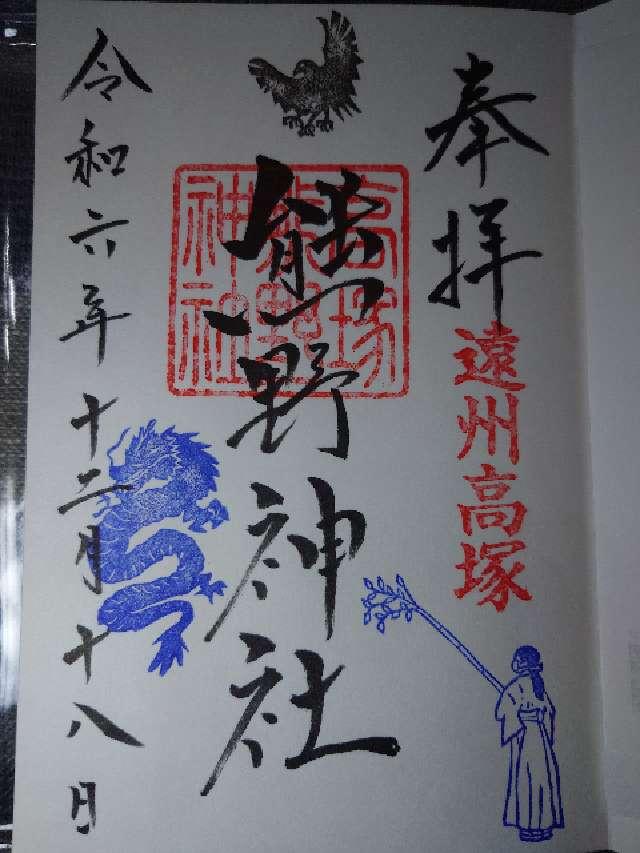 奉拝
遠州高塚
高塚
熊野
神社
熊野神社
令和六年十二月十八日